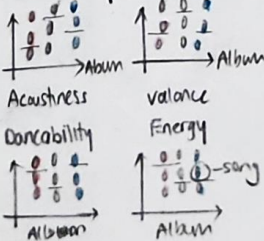 Album
Album
Acoustness
valance
Dancability
Energy
song
Album
Album